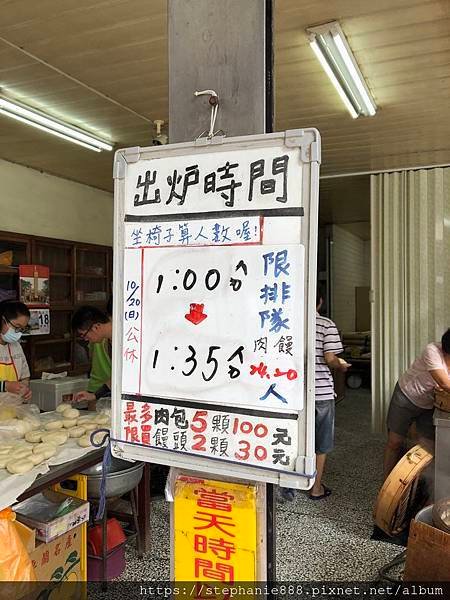 出炉時間
坐椅子算人數喔!
10/20(日)公休
1:00分
1:35分
限排隊
肉饅
20
人
最多買
限
肉包5顆100元
饅頭2顆30元
當天時間
18
https://stephanie888.pixnet.net/album